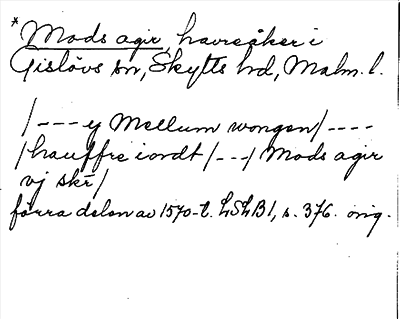 * Mads agir, havreåker i
Gislövs sn, Skytts hd, Malm. l.
/---y Mellum wongen/----
/hauffre iordt/---/ Mads agir
vj skr/
förra delen av 1570-t. LSLB1, s. 376. orig.